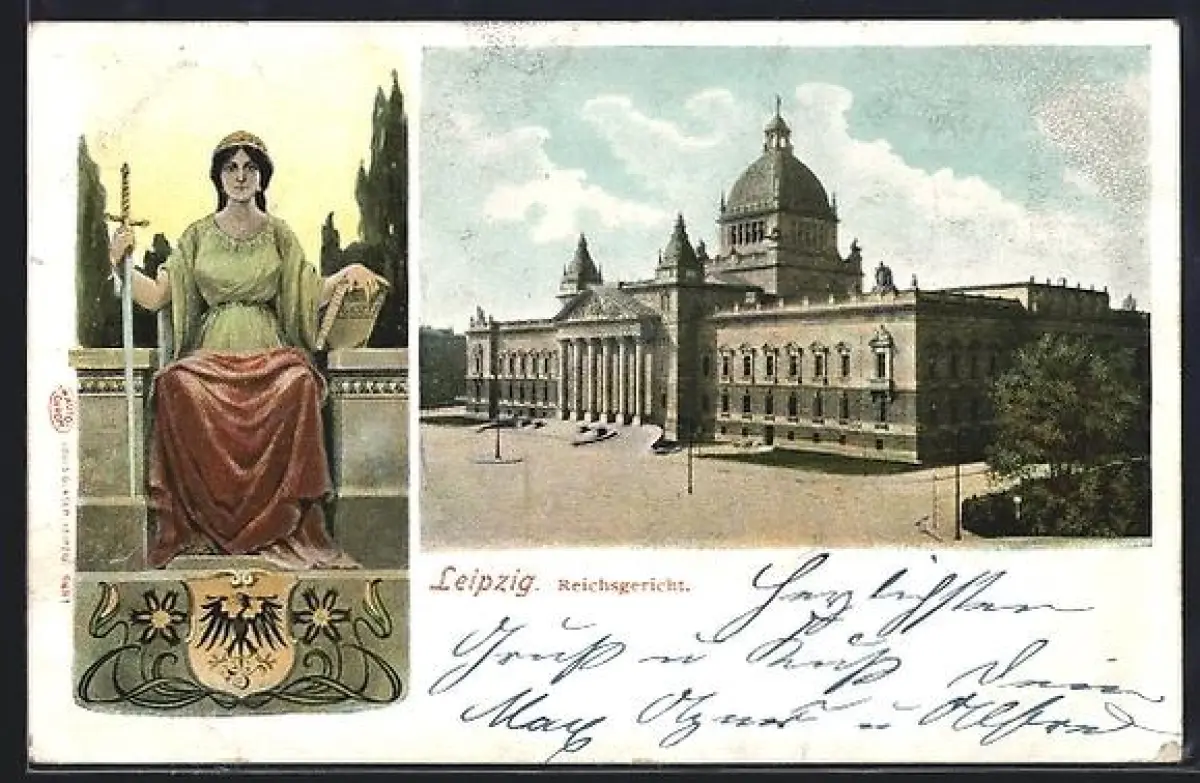 Leipzig. Reichsgericht.
Herzlichsten
Gruß u Kuß Dein
Max u Alfred